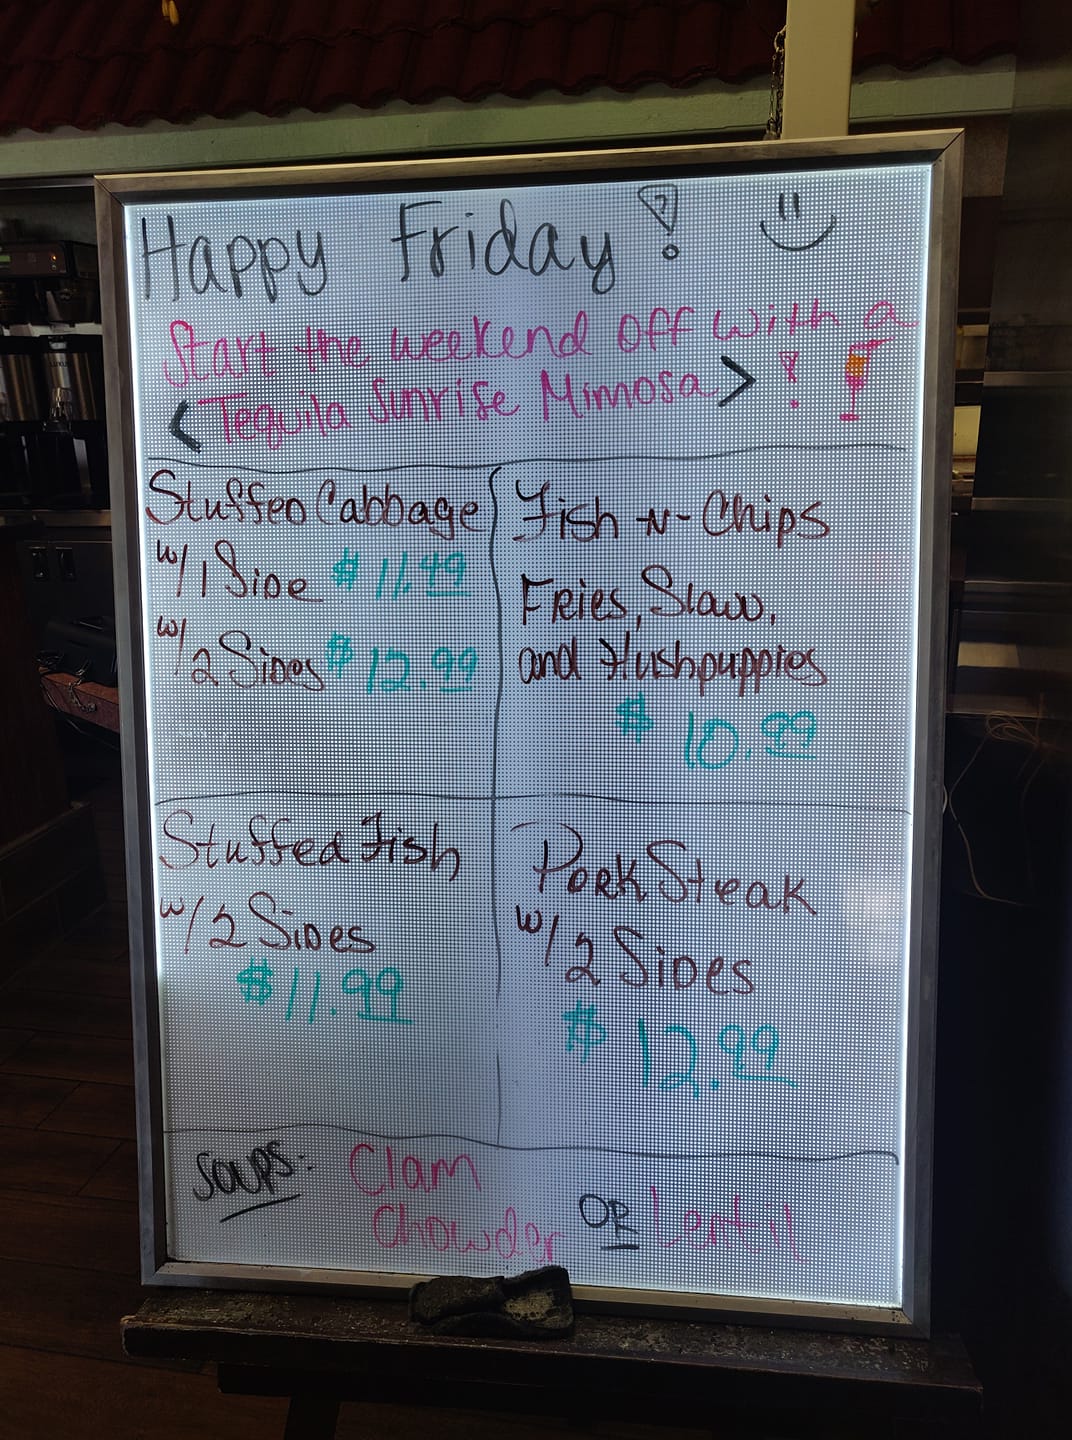 Happy Friday!
Start the weekend off with a
<Tequila Sunrise Mimosa>!
Stuffed Cabbage
w/1 Side $11.49
w/2 Sides $12.99
Fish-N-Chips
Fries, Slaw,
and Hushpuppies
$10.99
Stuffed Fish
w/2 Sides
$11.99
Pork Steak
w/2 Sides
$12.99
Soups: Clam
Chowder OR Lentil